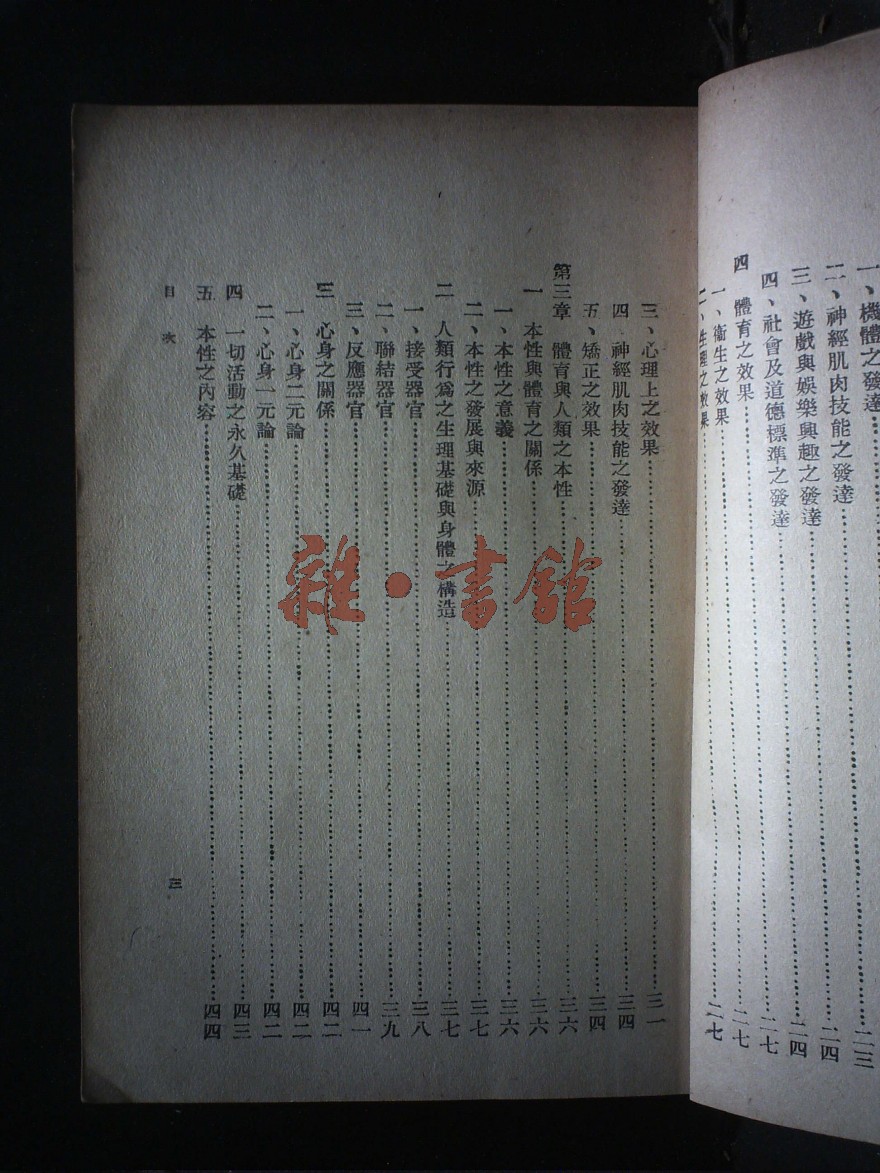 一、機體之發達……二三
二、神經肌肉技能之發達……二四
三、遊戲與娛樂興趣之發達……二四
四、社會及道德標準之發達……二七
四　體育之效果……二七
一、衞生之效果……二七
二、生理之效果……二七
三、心理上之效果……三一
四、神經肌肉技能之發達……三四
五、矯正之效果……三四
第三章　體育與人類之本性……三六
一　本性與體育之關係……三六
一、本性之意義……三六
二、本性之發展與來源……三七
二　人類行爲之生理基礎與身體之構造……三七
一、接受器官……三八
二、聯結器官……三九
三、反應器官……四一
三　心身之關係……四二
一、心身二元論……四二
二、心身一元論……四二
四　一切活動之永久基礎……四三
五　本性之內容……四四
目次
三
雜·書館